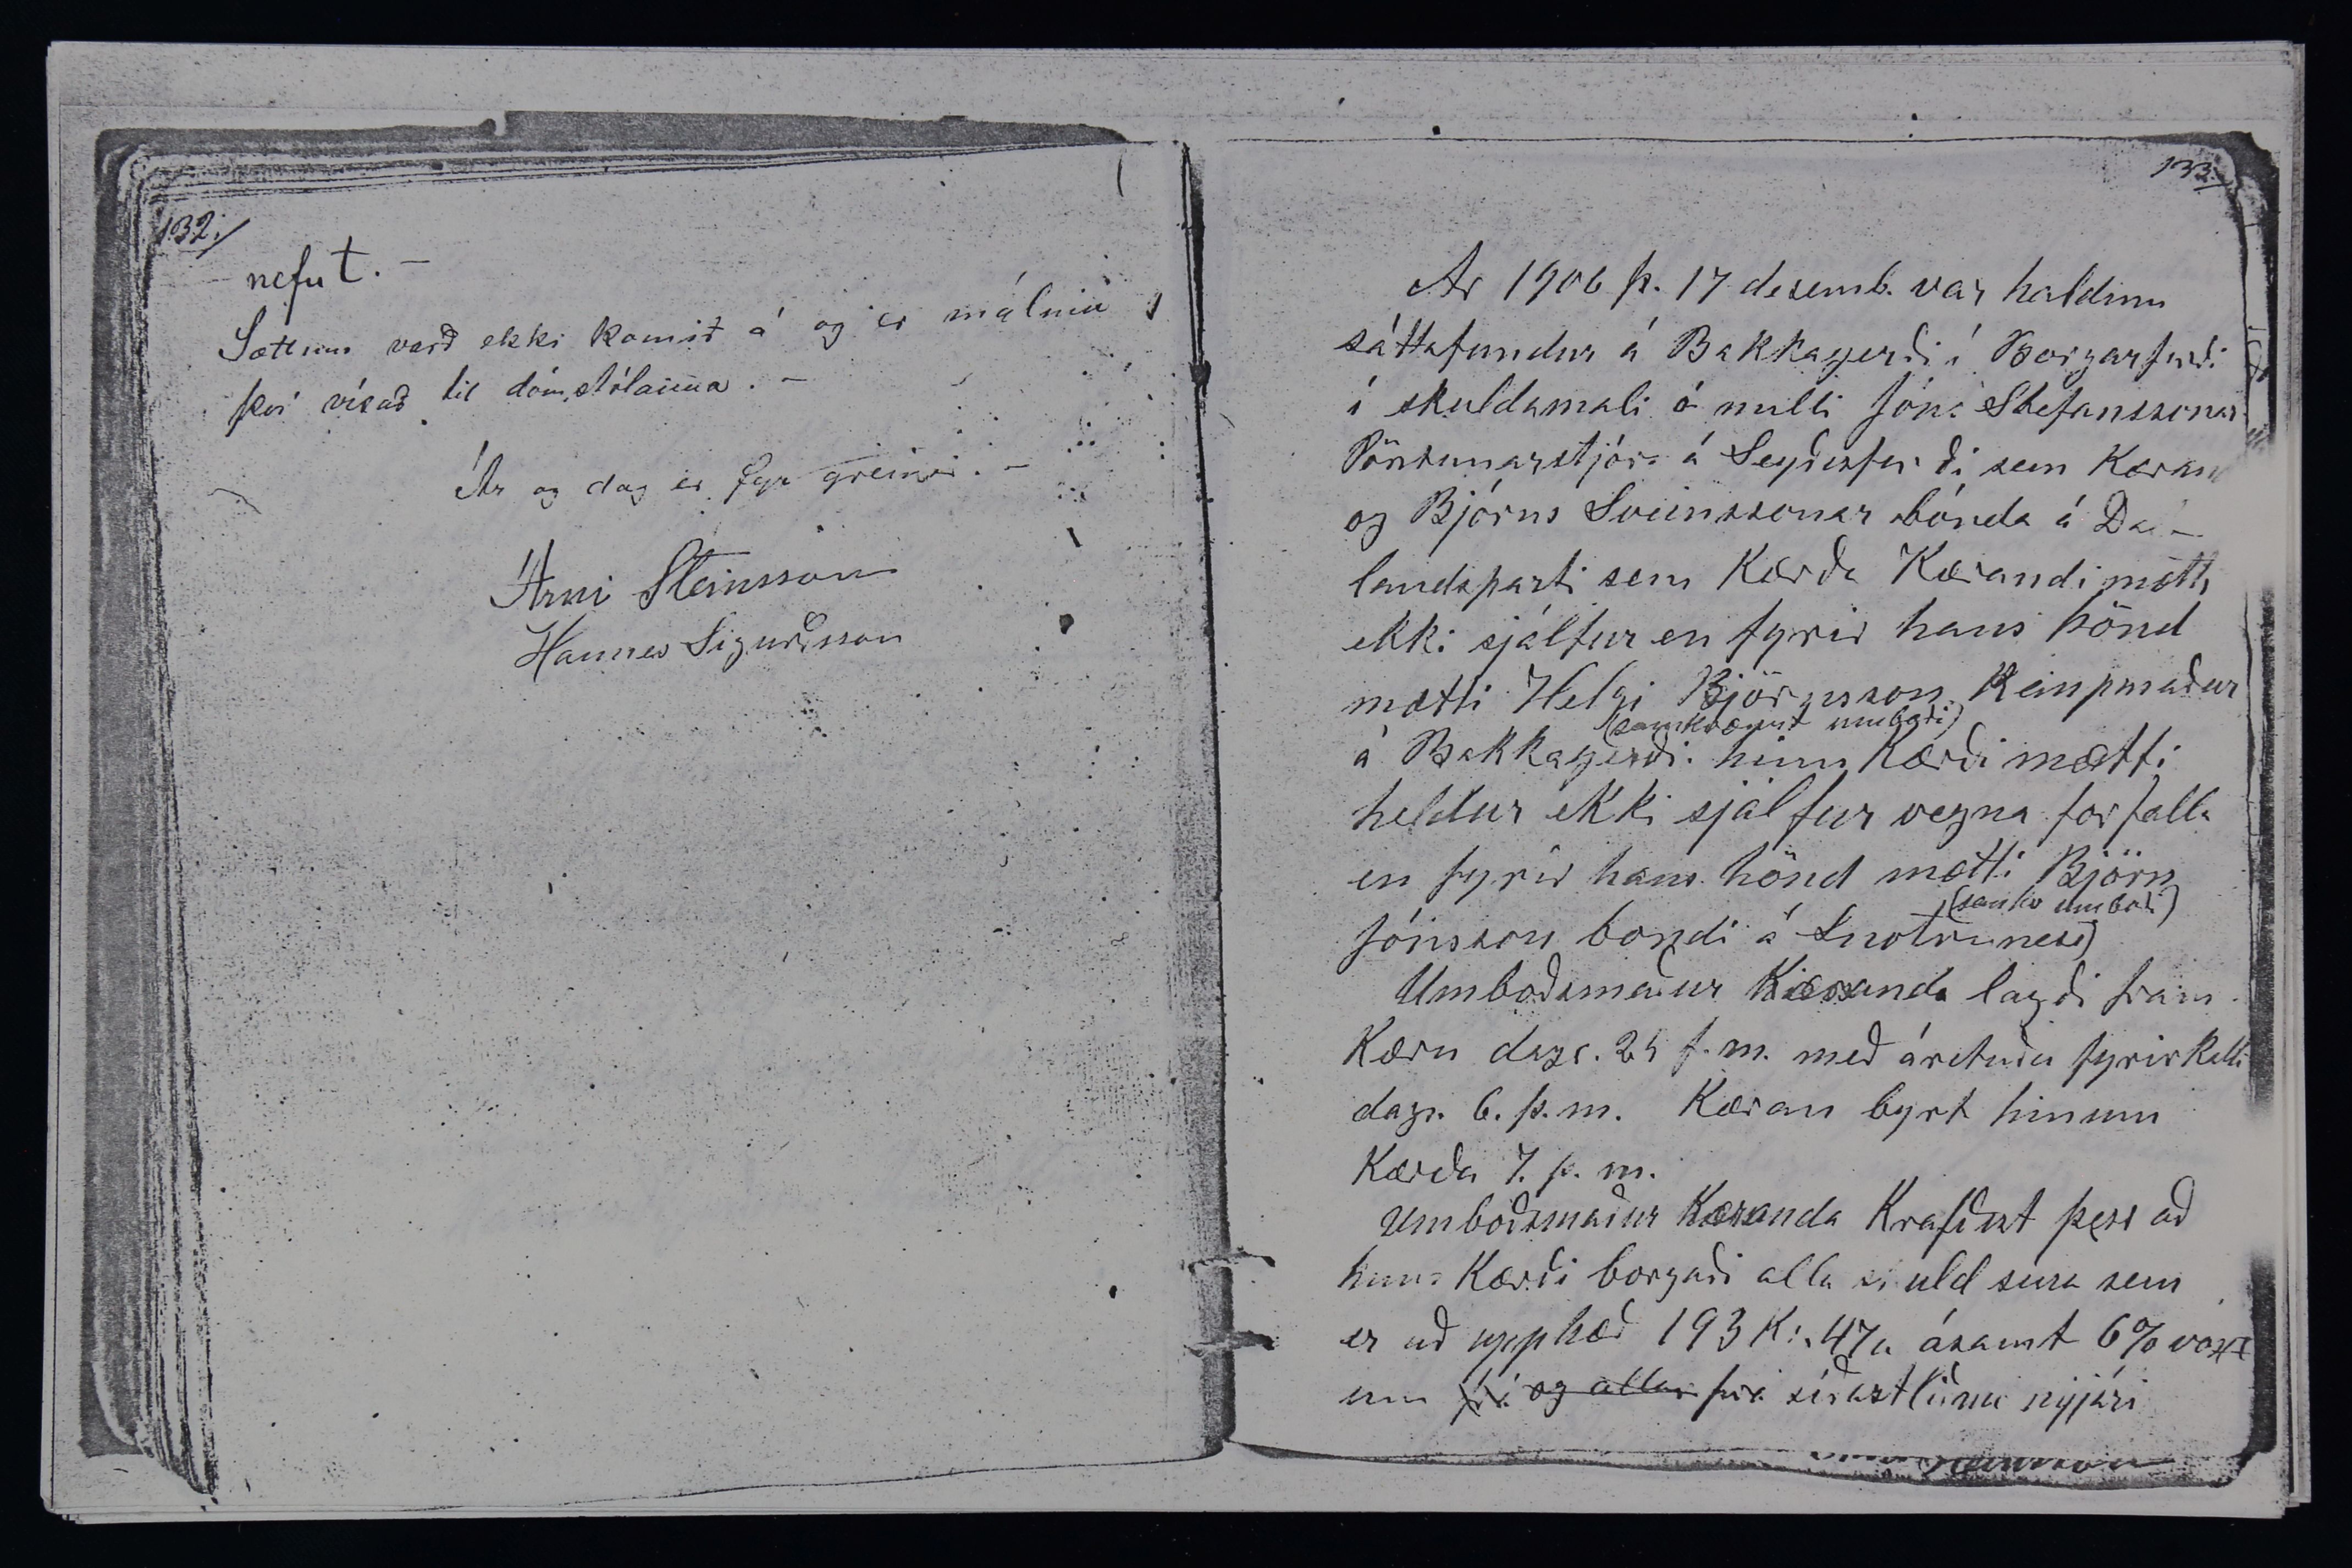 132.
nefnt. —
Sættum varð ekki komið á og er málinu
því vísað til dómstólanna. —
Ár og dag er fyr greinir. —
Árni Steinsson
Hannes Sigurðsson
133.
Ár 1906 þ. 17 desemb. var haldinn
sáttafundur á Bakkagerði í Borgarfirði
í skuldamali á milli Jóns Stefanssonar
Pöntunarstjóra á Seyðisfirði sem Kæran
og Björns Sveinssonar bónda á Da-
landsparti sem Kærða Kærandi mætti
ekki sjálfur en fyrir hans hönd
mætti Helgi Björnsson Kaupmaður
(samkvæmt umboði)
á Bakkagerði. hinn Kærði mætti
heldur ekki sjálfur vegna forfalla
en fyrir hans hönd mætti Björn
(samkv umboði)
Jónsson bondi á Snotrunesi
Umboðsmaður Kæranda lagði fram
Kæru dags. 25 f.m. með áretuðu fyrirkalli
dags. 6. þ.m. Kæran byrt hinum
Kærða 7. þ.m.
Umboðsmaður Kæranda Krafðist þess að
hinn Kærði borgaði alla skuld sína sem
er að upphæð 193 Kr. 47a ásamt 6% vöxt
um frá og allar frá síðastliðnu nýjári